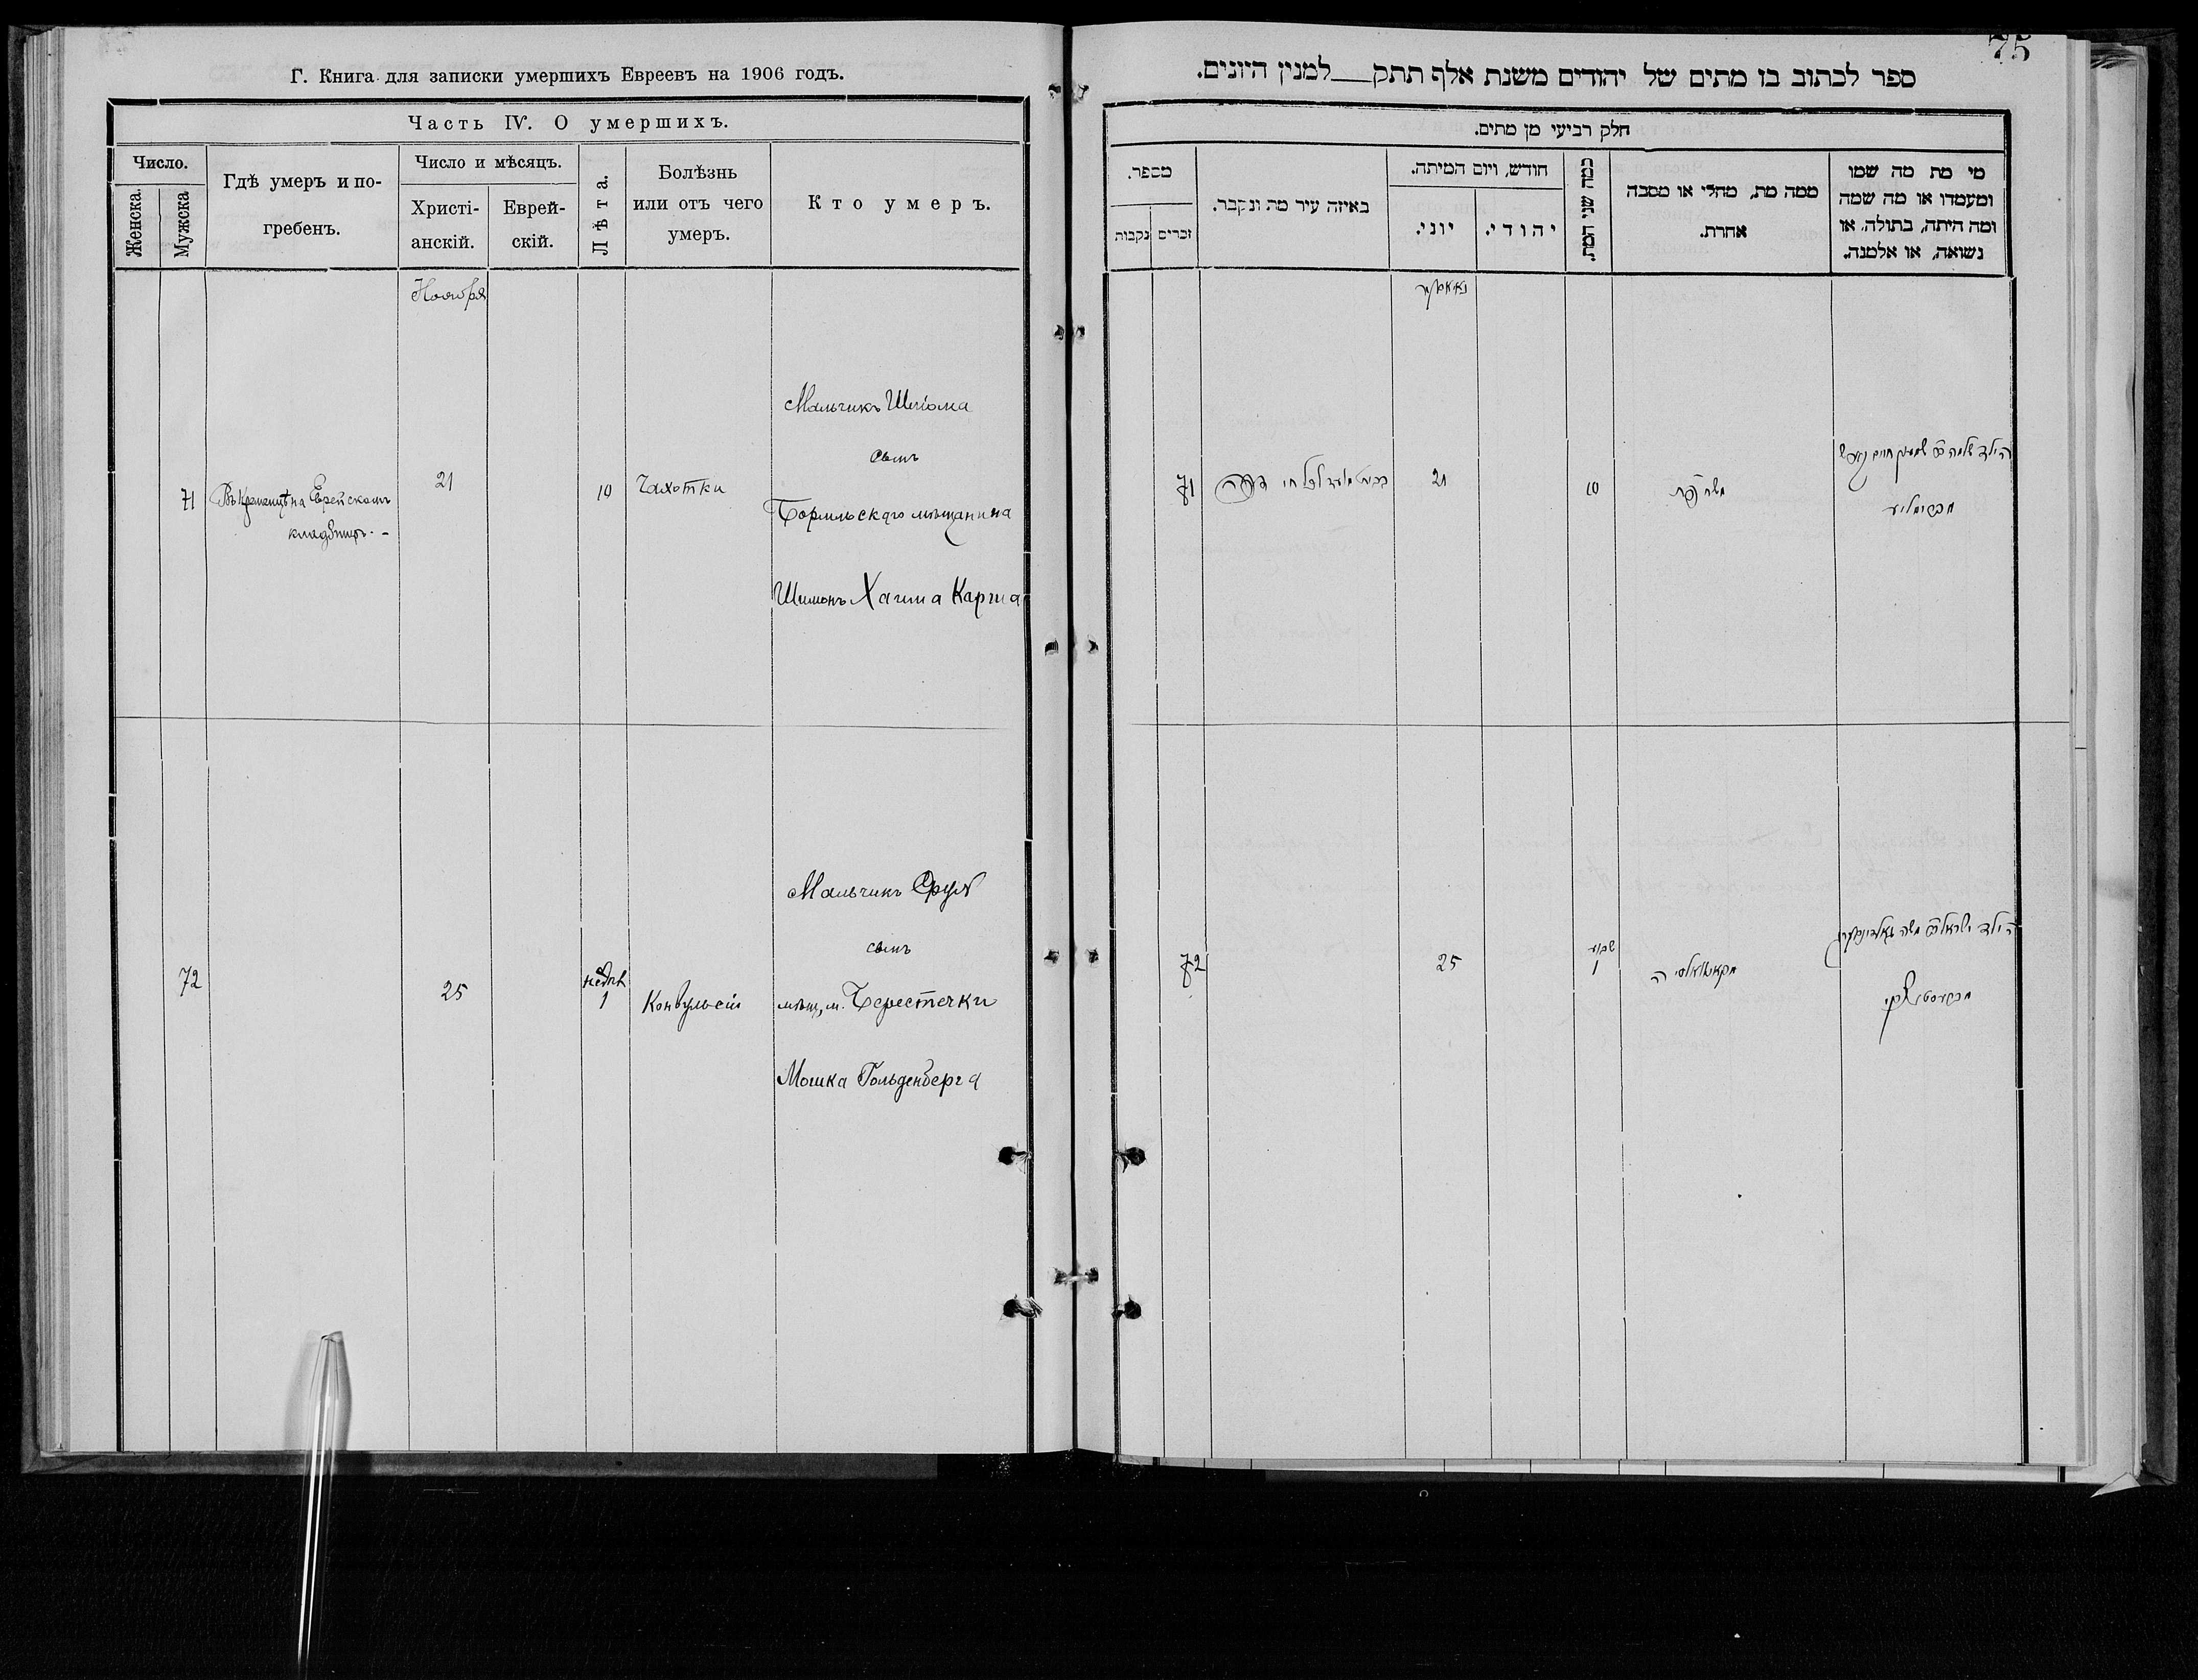 Г. Книга для записки умершихъ Евреевъ на 1906 годъ.
Часть IV. О умершихъ.
Число.
Женска.
Мужска
Гдѣ умеръ и по-
гребенъ.
Число и мѣсяцъ.
Христі-
анскій.
Еврей-
скій.
Лѣта.
Болѣзнь
или отъ чего
умеръ.
Кто умеръ.
Ноября
71
Въ Кременцѣ на Еврейскомъ
кладбищѣ. -
21
10
Чахотки
Мальчикъ Шлёма
сынъ
мѣщанина
Шимонъ Хаима
72
25
недѣль
1
Конвульсій
Мальчикъ Сруль
сынъ
мѣщ. м. Берестечки
Мошка Гольденберга
75
ספר לכתוב בו מתים של יהודים משנת אלף תתק למנין היונים.
חלק רביעי מן מתים.
מספר.
נקבות
זכרים
באיזה עיר מת ונקבר.
חודש, ויום המיתה.
יוני.
יהודי.
כמה שני המת.
ממה מת, מחלי או מסבה
אחרת.
מי מת מה שמו
ומעמדו או מה שמה
ומה היתה, בתולה, או
נשואה, או אלמנה.
71
21
10
הילד שלמה
72
25
שבוע
1
הילד ישראל משה